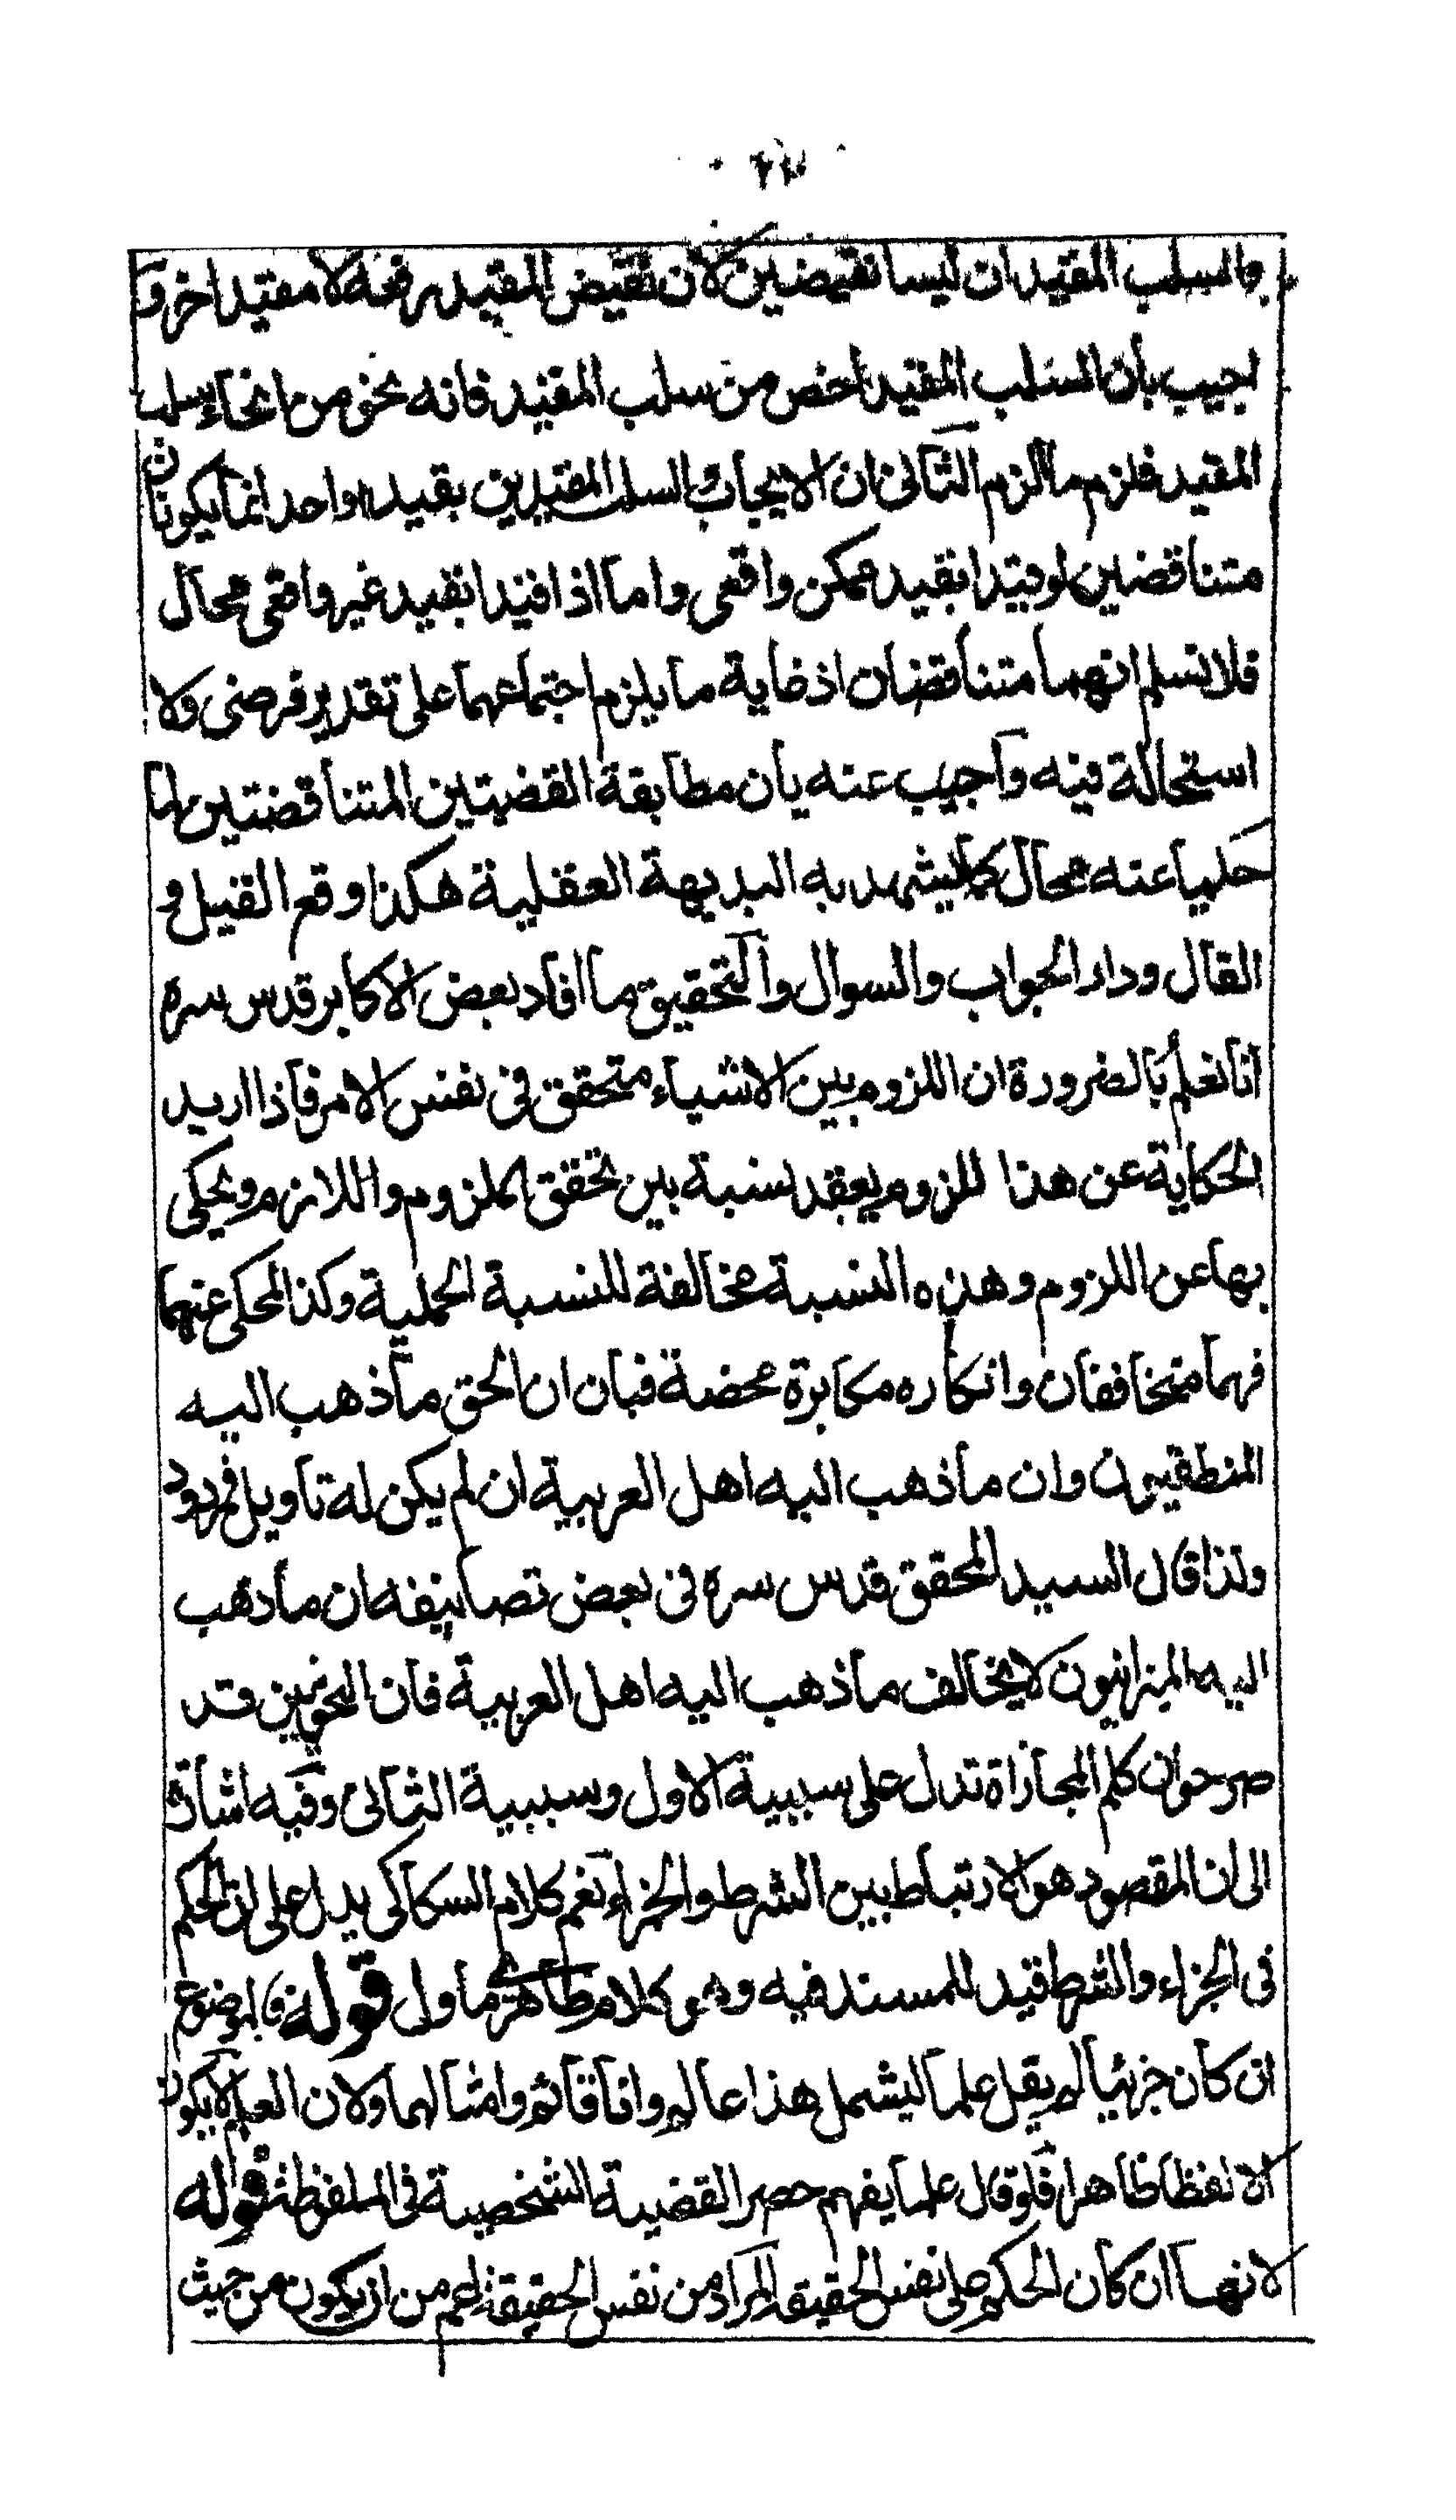 والسلب المقيدان ليسا نقيضين لان نقيض المقيد رفعه لا مقيد اخر و
اجيب بان السلب المقيد اخص من سلب المقيد فانه نحو من انحاء سلب
المقيد فلزم ما الزم الثانى ان الايجاب والسلب المقيدين بقيد واحد انما يكونان
متناقضين لو قيدا بقيد ممكن واقعى واما اذا قيدا بقيد غير واقعى محال
فلا نسلم انهما متناقضان اذ غاية ما يلزم اجتماعهما على تقدير فرضى ولا
استحالة فيه واجيب عنه بان مطابقة القضيتين المتناقضتين لما
حكيا عنه محال كما يشهد به البديهة العقلية هكذا وقع القيل و
القال ودار الجواب والسوال والتحقيق ما افاد بعض الاكابر قدس سره
انا نعلم بالضرورة ان اللزوم بين الاشياء متحقق فى نفس الامر فاذا اريد
الحكاية عن هذا اللزوم يعقد نسبة بين تحقق الملزوم واللازم ويحكى
بها عن اللزوم وهذه النسبة مخالفة للنسبة الحملية وكذا المحكى عنهما
فهما متخالفان وانكاره مكابرة محضة فبان ان الحق ما ذهب اليه
المنطقيون وان ما ذهب اليه اهل العربية ان لم يكن له تاويل فمردود
ولذا قال السيد المحقق قدس سره فى بعض تصانيفه ان ما ذهب
اليه الميزانيون لا يخالف ما ذهب اليه اهل العربية فان النحويين قد
صرحوا ان كلم المجازاة تدل على سببية الاول وسببية الثانى وفيه اشارة
الى ان المقصود هو الارتباط بين الشرط والجزاء نعم كلام السكاكى يدل على ان الحكم
فى الجزاء والشرط قيد للمسند فيه وهو كلام ظاهرى ماول قوله فالموضوع
ان كان جزئيا لم يقل علما ليشمل هذا عالم وانا قائم وامثالهما ولان العلم لا يكون
الا لفظا ظاهرا فلو قال علما يفهم حصر القضية الشخصية فى الملفوظة قوله
لانها ان كان الحكم على نفس الحقيقة المراد من نفس الحقيقة اعم من ان يكون من حيث